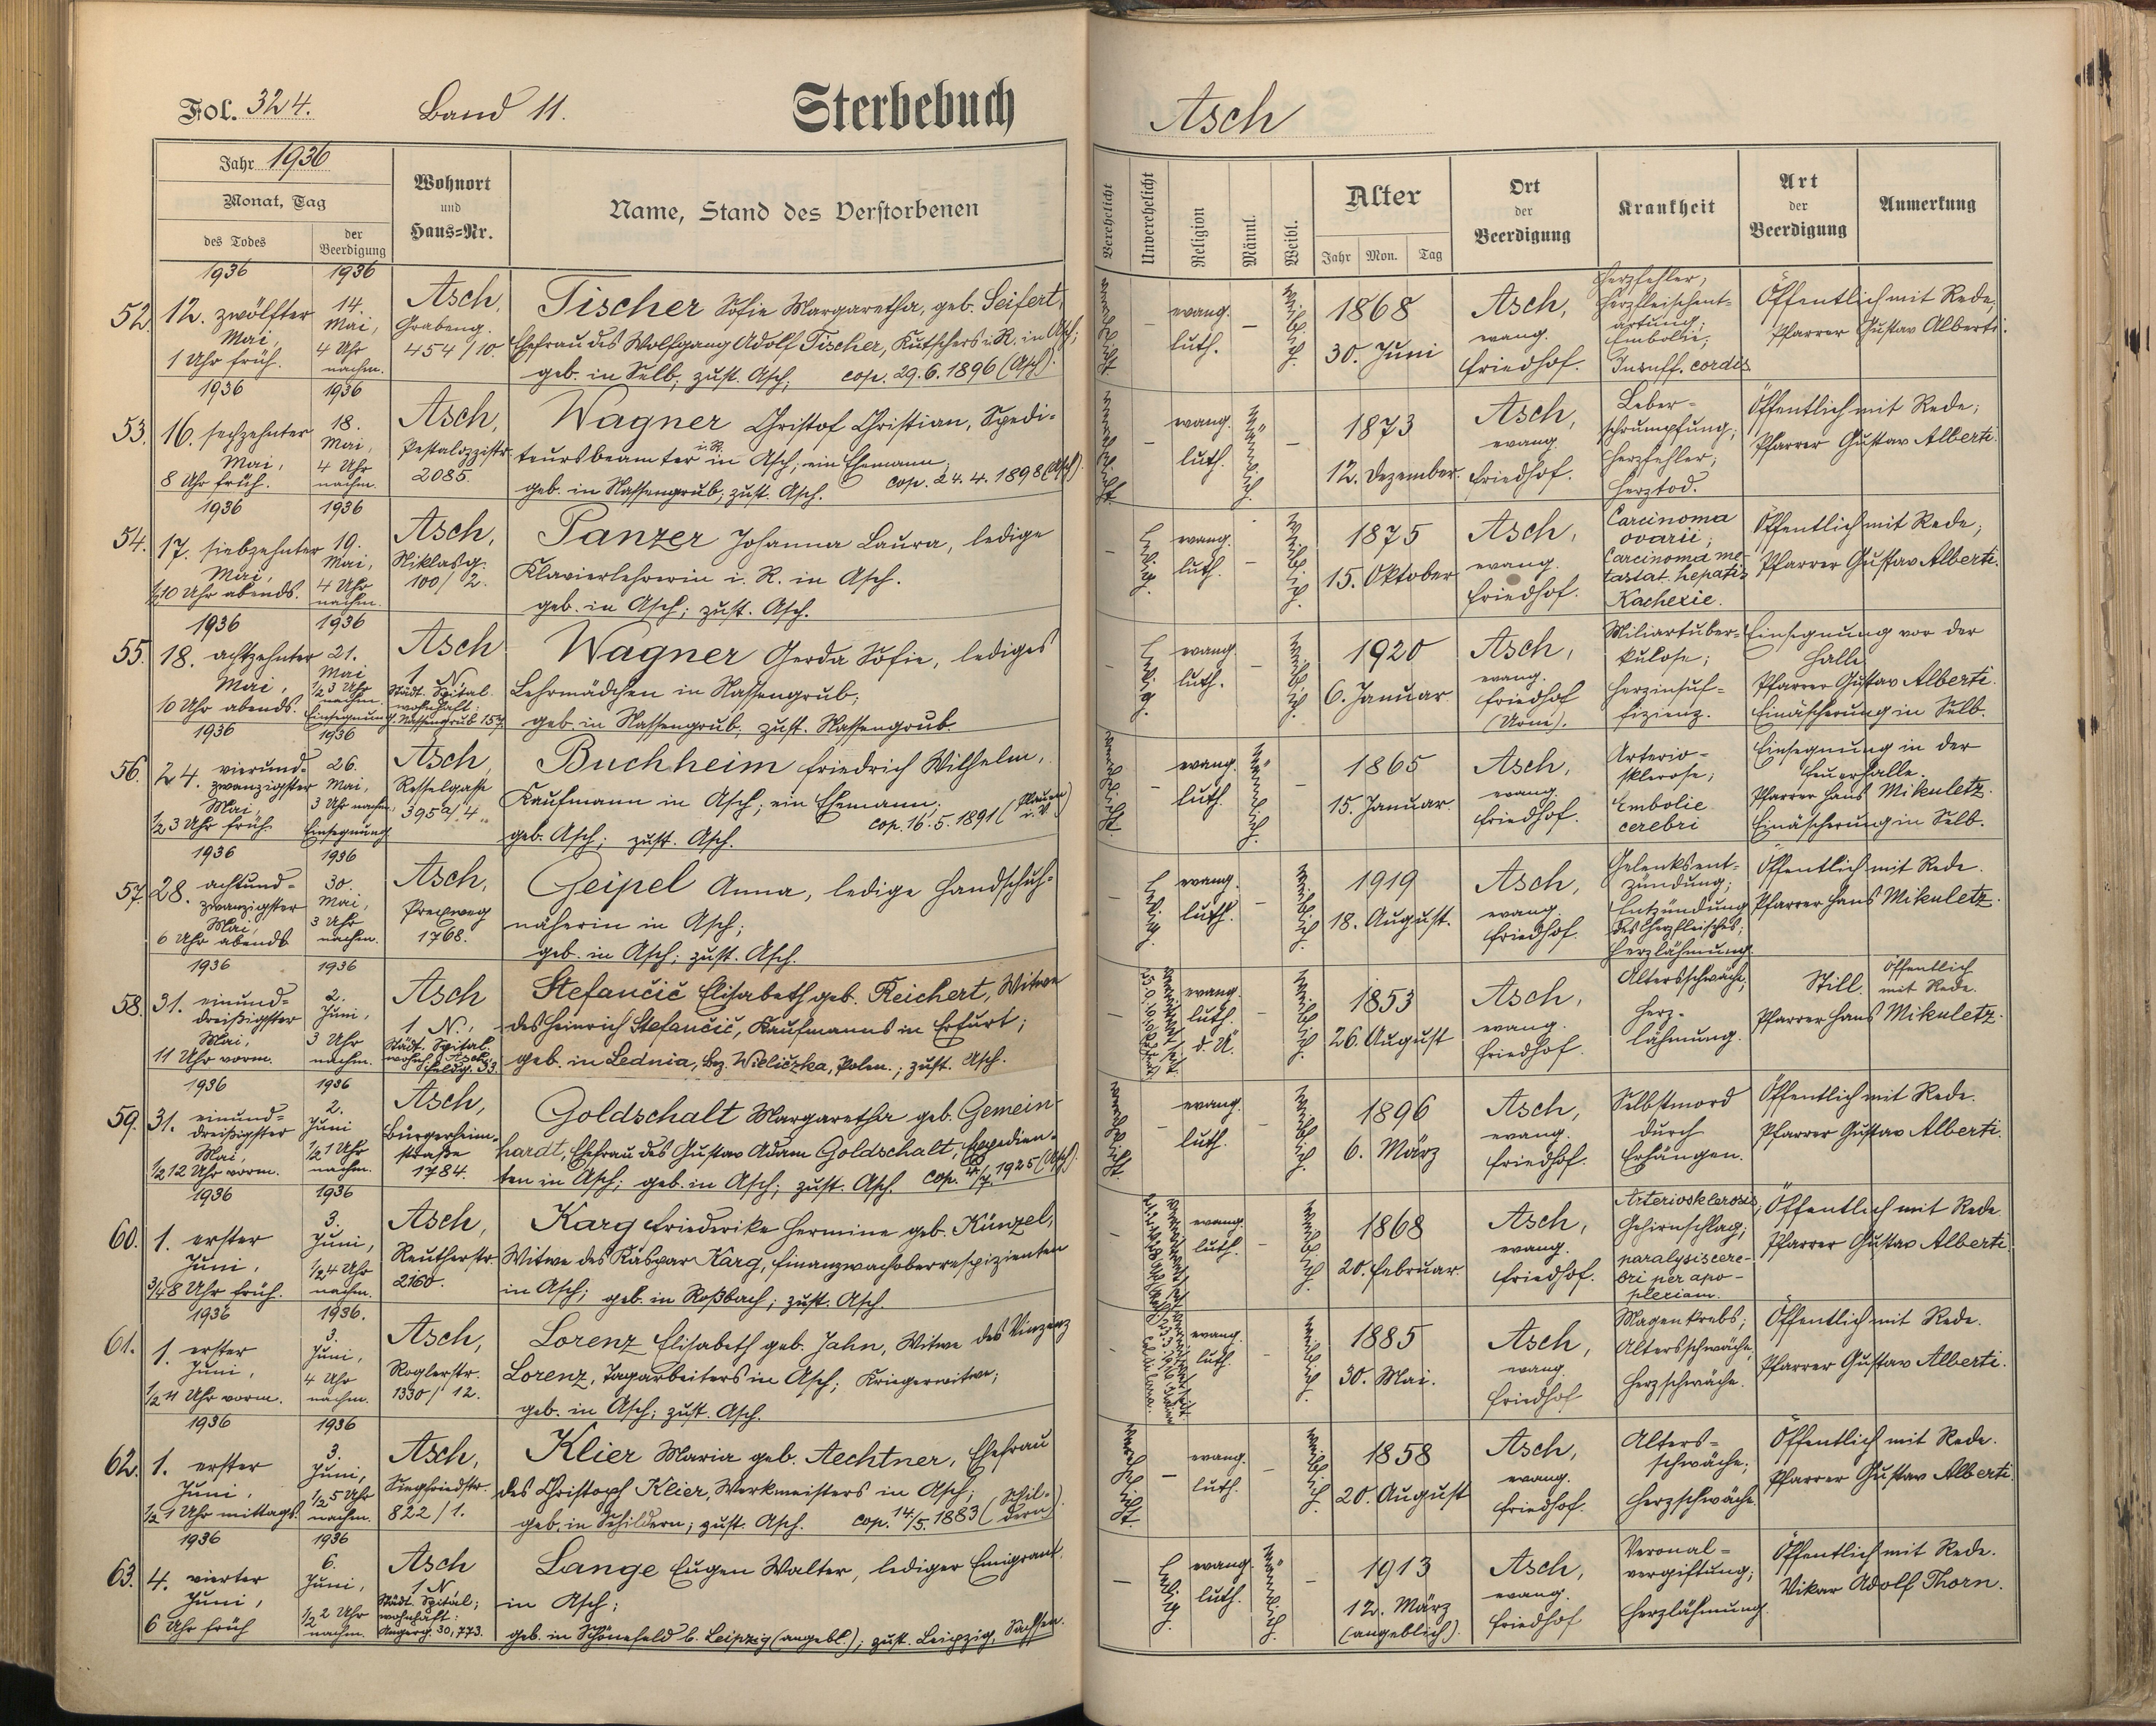 Fol. 324. Band 11. Sterbebuch Asch
Jahr 1936
Monat, Tag
des Todes
der Beerdigung
Wohnort
und
Haus=Nr.
Name, Stand des Verstorbenen
Verehelicht
Unverehelicht
Religion
Männl.
Weibl.
Alter
Jahr Mon. Tag
Ort
der
Beerdigung
Krankheit
Art
der
Beerdigung
Anmerkung
52. 1936
12. zwölfter
Mai,
1 Uhr früh.
1936
14.
Mai,
4 Uhr
nachm.
Asch,
Grabeng.
454/10.
Fischer Sofie Margaretha, geb. Seifert,
Ehefrau des Wolfgang Adolf Fischer, Kutschers i. R. in Asch;
geb. in Selb; zust. Asch; cop. 29.6.1896 (Asch).
verehelicht
–
evang.
luth.
–
weiblich.
1868
30. Juni
Asch,
evang.
Friedhof.
Herzfehler;
Herzfleischent=
artung;
Embolie;
Insuff. cordis
Öffentlich mit Rede,
Pfarrer Gustav Alberti.
53. 1936
16. sechzehnter
Mai,
8 Uhr früh.
1936
18.
Mai,
4 Uhr
nachm.
Asch,
Pestalozzistr.
2085.
Wagner Christof Christian, Spedi=
teursbeamter i. R. in Asch; ein Ehemann;
geb. in Nassengrub; zust. Asch. cop. 24.4.1898 (Asch).
verehelicht
–
evang.
luth.
männlich.
–
1873
12. Dezember.
Asch,
evang.
Friedhof.
Leber=
schrumpfung;
Herzfehler;
Herztod.
Öffentlich mit Rede;
Pfarrer Gustav Alberti.
54. 1936
17. siebzehnter
Mai,
1/2 10 Uhr abends.
1936
19.
Mai,
4 Uhr
nachm.
Asch,
Niklasg.
100/2.
Panzer Johanna Laura, ledige
Klavierlehrerin i. R. in Asch.
geb. in Asch; zust. Asch.
–
ledig.
evang.
luth.
–
weiblich.
1875
15. Oktober
Asch,
evang.
Friedhof.
Carcinoma
ovarii;
Carcinoma me-
tastat. hepatis
Kachexie.
Öffentlich mit Rede;
Pfarrer Gustav Alberti.
55. 1936
18. achtzehnter
Mai,
10 Uhr abends.
1936
21.
Mai
1/2 3 Uhr
nachm.
Einsegnung
Asch
1 N
Städt. Spital
wohnhaft:
Nassengrub 157
Wagner Gerda Sofie, lediges
Lehrmädchen in Nassengrub;
geb. in Nassengrub, zust. Nassengrub.
–
ledig.
evang.
luth.
–
weiblich.
1920
6. Januar
Asch,
evang.
Friedhof
(Urne).
Miliartuber=
kulose;
Herzinsuf=
fizienz.
Einsegnung vor der
Halle
Pfarrer Gustav Alberti.
Einäscherung in Selb.
56. 1936
24. vierund=
zwanzigster
Mai,
1/2 3 Uhr früh
1936
26.
Mai,
3 Uhr nachm.
Einsegnung
Asch,
Resselgasse
395a/4.
Buchheim Friedrich Wilhelm,
Kaufmann in Asch; ein Ehemann;
geb. Asch; zust. Asch. cop. 16.5.1891 (Plauen i. V.)
verehelicht
–
evang.
luth.
männlich.
–
1865
15. Januar.
Asch,
evang.
Friedhof.
Arterio-
sklerose;
Embolie
cerebri
Einsegnung in der
Feuerhalle.
Pfarrer Hans Mikuletz.
Einäscherung in Selb.
57. 1936
28. achtund=
zwanzigster
Mai,
6 Uhr abends
1936
30.
Mai,
3 Uhr
nachm.
Asch,
1768.
Geipel Anna, ledige Handschuh=
näherin in Asch;
geb. in Asch; zust. Asch.
–
ledig.
evang.
luth.
–
weiblich.
1919
18. August.
Asch,
evang.
Friedhof.
Gelenksent=
zündung;
Entzündung
des Herzfleisches;
Herzlähmung.
Öffentlich mit Rede.
Pfarrer Hans Mikuletz.
58. 1936
31. einund=
dreißigster
Mai,
11 Uhr vorm.
1936
2.
Juni,
3 Uhr
nachm.
Asch
1 N.;
Städt. Spital
wohnh. Asch
Feldg. 33.
Stefančič Elisabeth geb. Reichert, Witwe
des Heinrich Stefančič, Kaufmanns in Erfurt;
geb. in Lednia, Bez. Wieliczka, Polen.; zust. Asch.
–
evang.
luth.
d. Ä.
weiblich.
1853
26. August
Asch,
evang.
Friedhof.
Altersschwäche;
Herz-
lähmung.
Still. öffentlich
mit Rede.
Pfarrer Hans Mikuletz.
59. 1936
31. einund=
dreißigster
Mai,
1/2 12 Uhr vorm.
1936
2.
Juni
1/2 1 Uhr
nachm.
Asch,
Bürgerheim-
straße
1784.
Goldschalt Margaretha geb. Gemein-
hardt, Ehefrau des Gustav Adam Goldschalt, Expedien-
ten in Asch; geb. in Asch; zust. Asch. cop. 4/7. 1925 (Asch).
verehelicht
–
evang.
luth.
–
weiblich.
1896
6. März
Asch,
evang.
Friedhof.
Selbstmord
durch
Erhängen.
Öffentlich mit Rede.
Pfarrer Gustav Alberti.
60. 1936
1. erster
Juni,
3/4 8 Uhr früh.
1936
3.
Juni,
1/2 4 Uhr
nachm.
Asch,
Reutherstr.
2160.
Karg Friederike Hermine geb. Künzel,
Witwe des Kaspar Karg, Finanzwachoberrespizienten
in Asch; geb. in Roßbach; zust. Asch.
–
evang.
luth.
–
weiblich.
1868
20. Februar.
Asch,
evang.
Friedhof.
Arteriosklerosis,
Gehirnschlag;
paralysis cere-
bri per apo-
plexiam.
Öffentlich mit Rede
Pfarrer Gustav Alberti
61. 1936
1. erster
Juni,
Uhr vorm.
1936.
3.
Juni,
4 Uhr
nachm.
Asch,
Roglerstr.
1330/12.
Lorenz Elisabeth geb. Jahn, Witwe des Vinzenz
Lorenz, Tagarbeiters in Asch; Kriegerwitwe;
geb. in Asch; zust. Asch.
–
evang.
luth.
–
weiblich.
1885
30. Mai.
Asch,
evang.
Friedhof
Magenkrebs;
Altersschwäche;
Herzschwäche.
Öffentlich mit Rede.
Pfarrer Gustav Alberti.
62. 1936
1. erster
Juni.
1/2 1 Uhr mittags.
1936
3.
Juni,
1/2 5 Uhr
nachm.
Asch,
Siegfriedstr.
822/1.
Klier Maria geb. Aechtner, Ehefrau
des Christoph Klier, Werkmeisters in Asch;
geb. in Schildern; zust. Asch. cop. 14/5. 1883 (Schil=dern)
verehelicht.
–
evang.
luth.
–
weiblich
1858
20. August
Asch,
evang.
Friedhof.
Alters=
schwäche;
Herzschwäche.
Öffentlich mit Rede.
Pfarrer Gustav Alberti.
63. 1936
4. vierter
Juni,
6 Uhr früh
1936
6.
Juni,
1/2 2 Uhr
nachm.
Asch
1 N
Städt. Spital;
wohnhaft:
Angerg. 30, 773.
Lange Eugen Walter, lediger Emigrant
in Asch;
geb. in Schönefeld b. Leipzig (angebl.); zust. Leipzig, Sachsen.
–
ledig.
evang.
luth.
männlich.
–
1913
12. März
(angeblich).
Asch,
evang.
Friedhof
Veronal=
vergiftung;
Herzlähmung.
Öffentlich mit Rede.
Vikar Adolf Thorn.